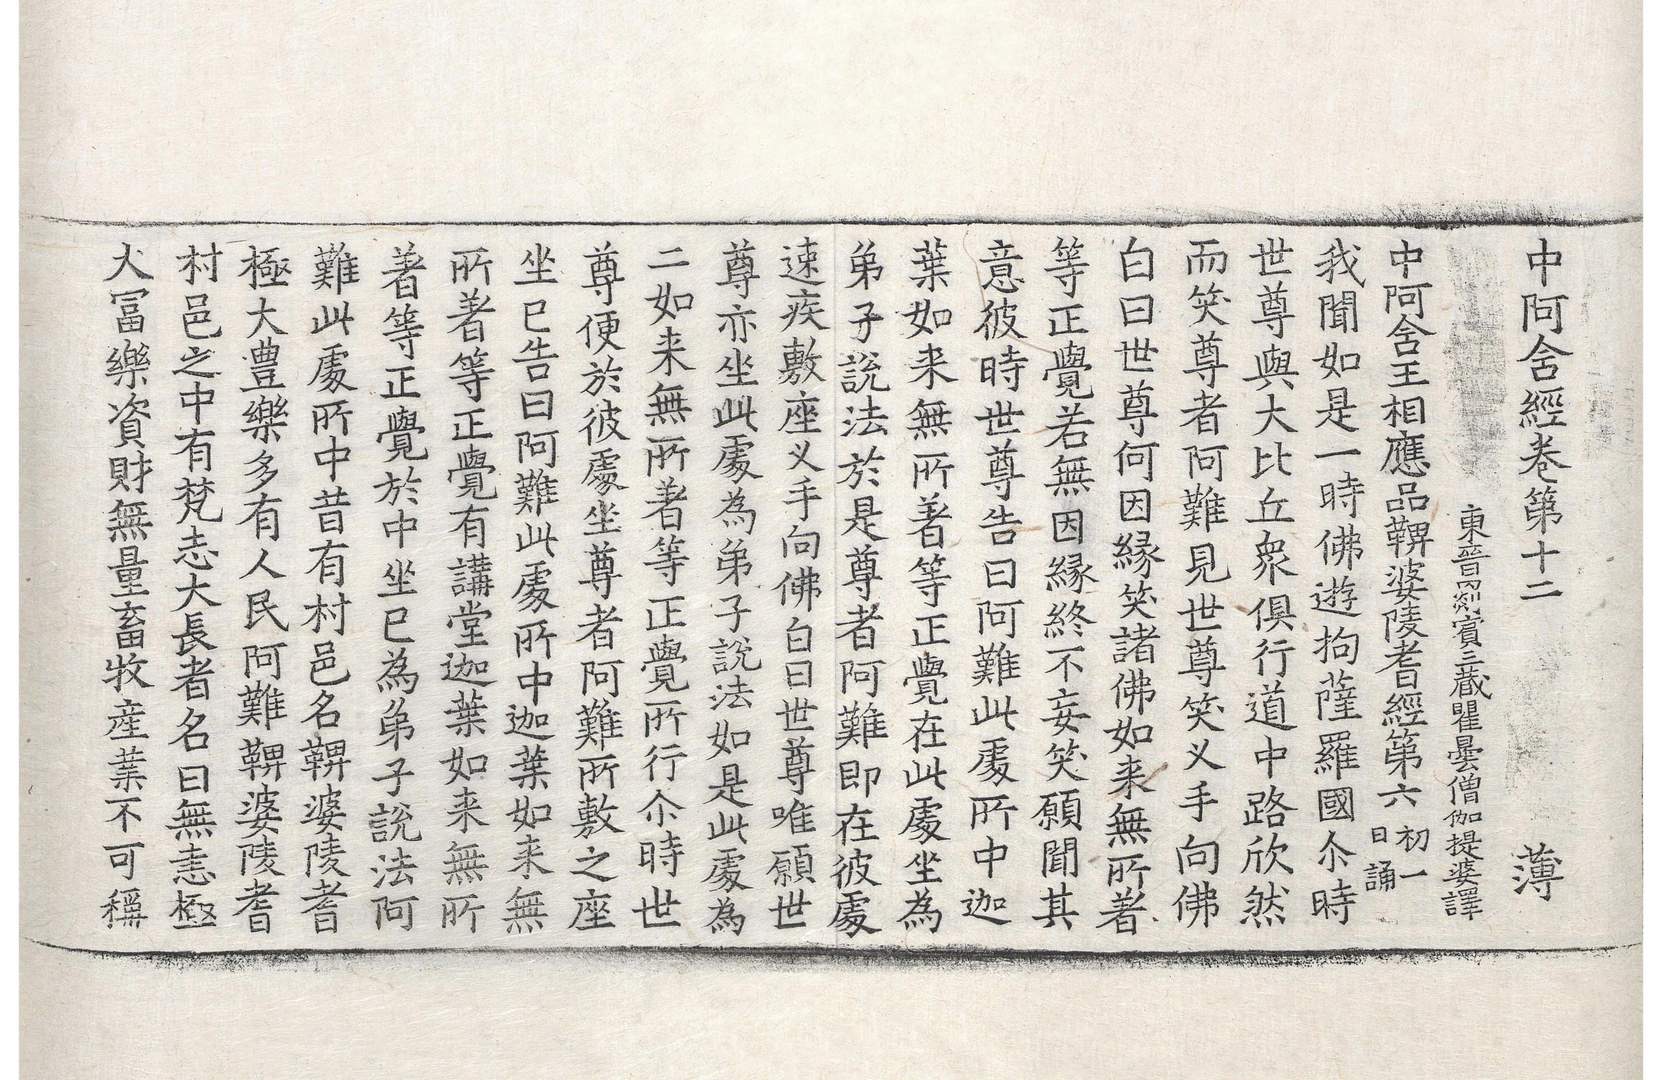 中阿含經卷第十二 薄
東晉罽賓三藏瞿曇僧伽提婆譯
中阿含王相應品鞞婆陵耆經第六 初一日誦
我聞如是一時佛遊拘薩羅國尒時
世尊與大比丘衆俱行道中路欣然
而笑尊者阿難見世尊笑叉手向佛
白曰世尊何因緣笑諸佛如来無所著
等正覺若無因緣終不妄笑願聞其
意彼時世尊告曰阿難此處所中迦
葉如来無所著等正覺在此處坐為
弟子說法於是尊者阿難即在彼處
速疾敷座叉手向佛白曰世尊唯願世
尊亦坐此處為弟子說法如是此處為
二如来無所著等正覺所行尒時世
尊便於彼處坐尊者阿難所敷之座
坐已告曰阿難此處所中迦葉如来無
所著等正覺有講堂迦葉如来無所
著等正覺於中坐已為弟子說法阿
難此處所中昔有村邑名鞞婆陵耆
極大豊樂多有人民阿難鞞婆陵耆
村邑之中有梵志大長者名曰無恚極
大冨樂資財無量畜牧産業不可稱